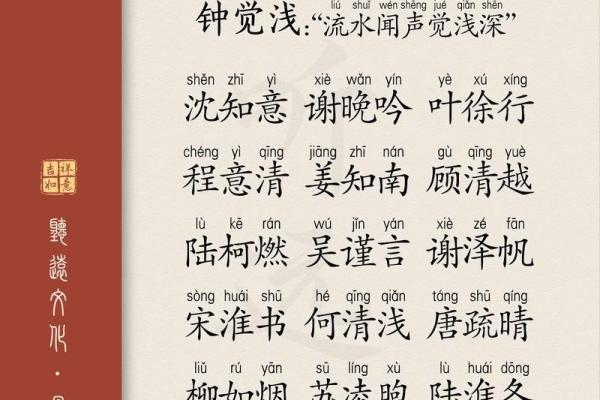 liú shuǐ wén shēng jué qiǎn shēn
钟觉浅:“流水闻声觉浅深”
shěn zhī yì xiè wǎn yín yè xú xíng
沈知意 谢晚吟 叶徐行
chéng yì qīng jiāng zhī nán gù qīng yuè
程意清 姜知南 顾清越
lù kē rán wú jǐn yán xiè zé fān
陆柯燃 吴谨言 谢泽帆
sòng huái shū hé qīng qiǎn táng shū qíng
宋淮书 何清浅 唐疏晴
liǔ rú yān sū líng xù lù huái dōng
柳如烟 苏凌煦 陆淮冬
吉祥
如意
聽遠文化·